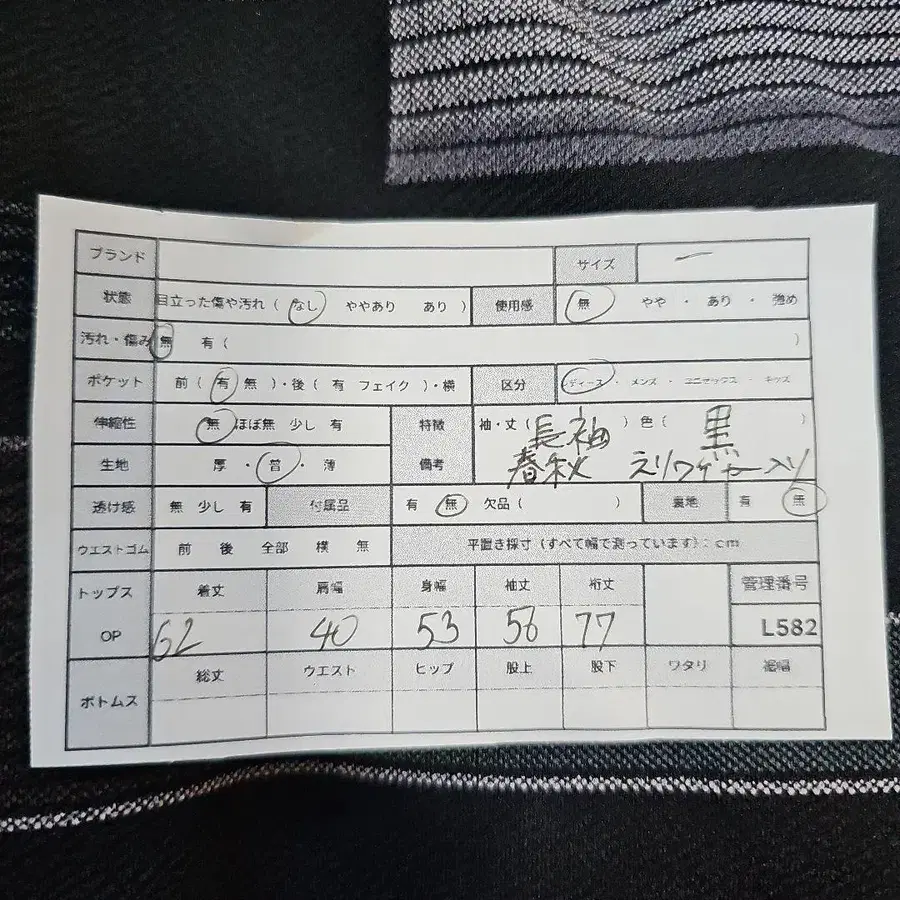 ブランド サイズ ー
状態 目立った傷や汚れ ( なし ややあり あり ) 使用感 無 やや ・ あり ・ 強め
汚れ・傷み 無 有 ( )
ポケット 前 ( 有 無 )・後 ( 有 フェイク )・横 区分 レディース ・ メンズ ・ ユニセックス ・ キッズ
伸縮性 無 ほぼ無 少し 有 特徴 袖・丈 ( 長袖 ) 色 ( 黒 )
生地 厚 ・ 普 ・ 薄 備考 春秋 えりワイヤー入り
透け感 無 少し 有 付属品 有 無 欠品 ( ) 裏地 有 無
ウエストゴム 前 後 全部 横 無 平置き採寸 (すべて幅で測っています) : cm
トップス 着丈 肩幅 身幅 袖丈 裄丈 管理番号
OP 62 40 53 56 77 L582
ボトムス 総丈 ウエスト ヒップ 股上 股下 ワタリ 裾幅